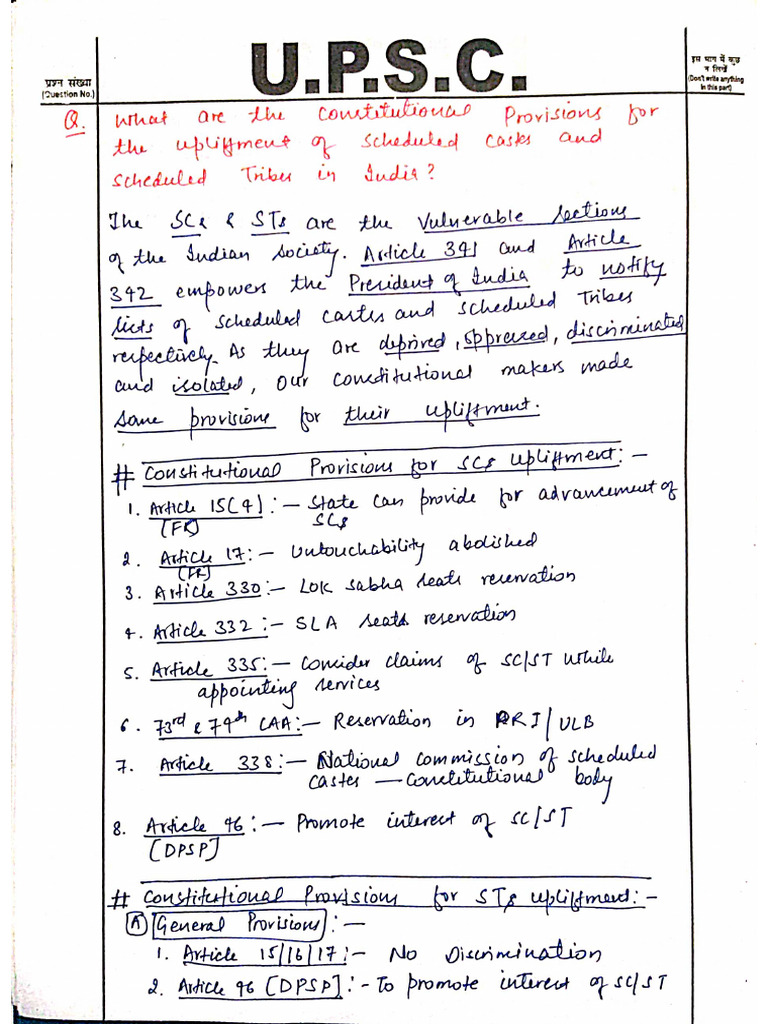 U.P.S.C.
प्रश्न संख्या
(Question No.)
इस भाग में कुछ
न लिखें
(Don't write anything
in this part)
Q. What are the Constitutional Provisions for
the upliftment of Scheduled Castes and
Scheduled Tribes in India?
The SCs & STs are the Vulnerable Sections
of the Indian Society. Article 341 and Article
342 empowers the President of India to notify
lists of Scheduled Castes and Scheduled Tribes
respectively. As they are deprived, oppressed, discriminated
and isolated, Our Constitutional makers made
some provisions for their upliftment.
# Constitutional Provisions for SCs upliftment:-
1. Article 15(4):- State Can provide for advancement of
(FR) SCs
2. Article 17:- Untouchability abolished
(FR)
3. Article 330:- Lok Sabha seats reservation
4. Article 332:- SLA seats reservation
5. Article 335:- Consider claims of SC/ST while
appointing services
6. 73rd & 74th CAA:- Reservation in PRI/ULB
7. Article 338:- National Commission of Scheduled
Castes - Constitutional body
8. Article 46:- Promote interest of SC/ST
[DPSP]
# Constitutional Provisions for STs upliftment:-
(A) General Provisions:-
1. Article 15/16/17:- No Discrimination
2. Article 46 [DPSP]:- To promote interest of SC/ST